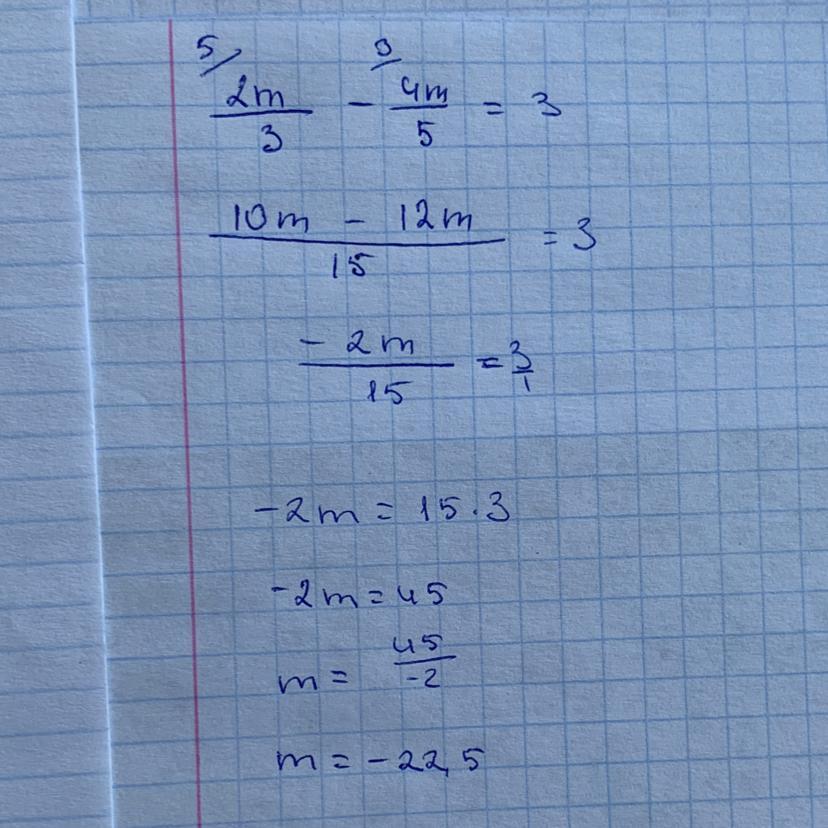 5/ 2m/3 - 3/ 4m/5 = 3
(10m - 12m)/15 = 3
-2m/15 = 3/1
-2m = 15 . 3
-2m = 45
m = 45/-2
m = -22,5